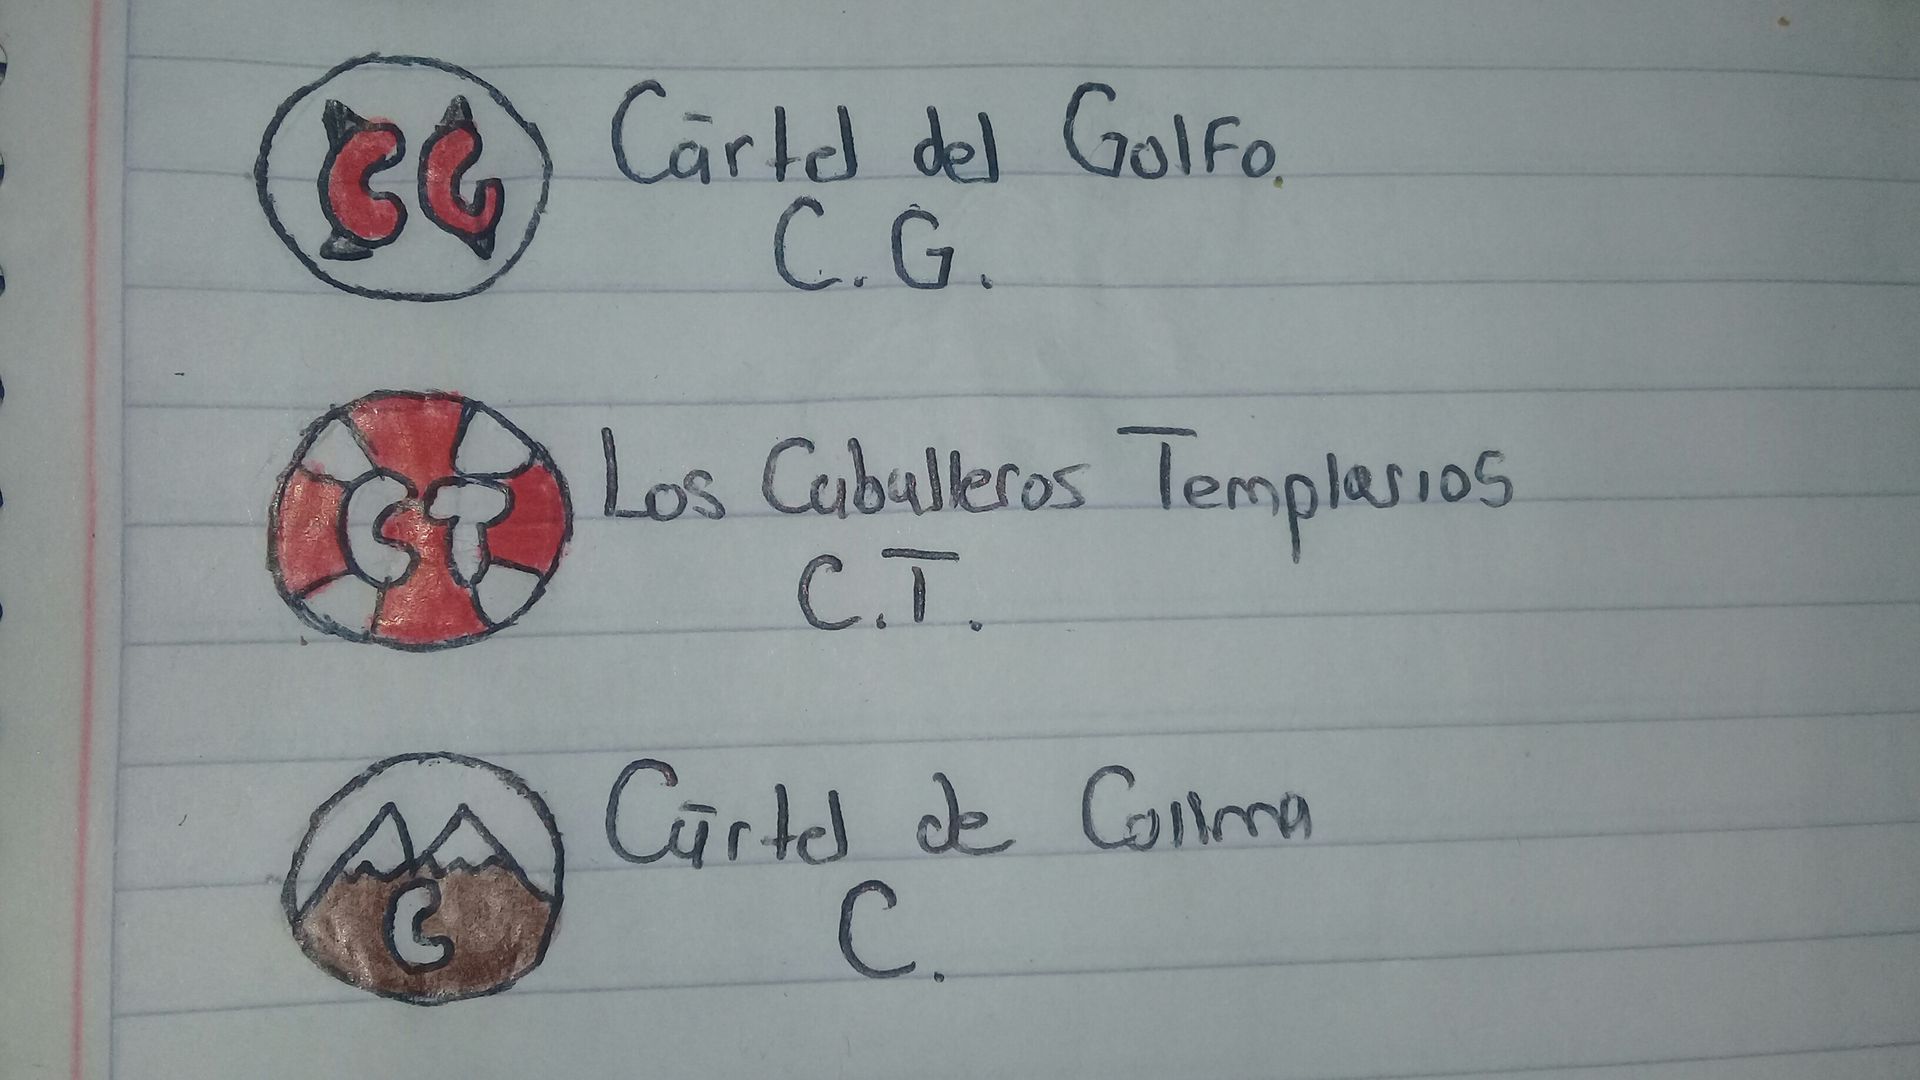 CG
Cártel del Golfo.
C.G.
CT
Los Caballeros Templarios
C.T.
C
Cártel de Colima
C.